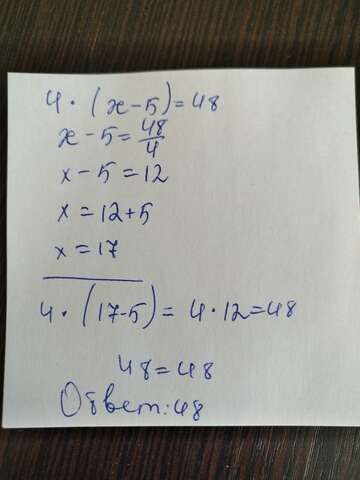 4 · (x - 5) = 48
x - 5 = 48/4
x - 5 = 12
x = 12 + 5
x = 17
4 · (17 - 5) = 4 · 12 = 48
48 = 48
Ответ: 48